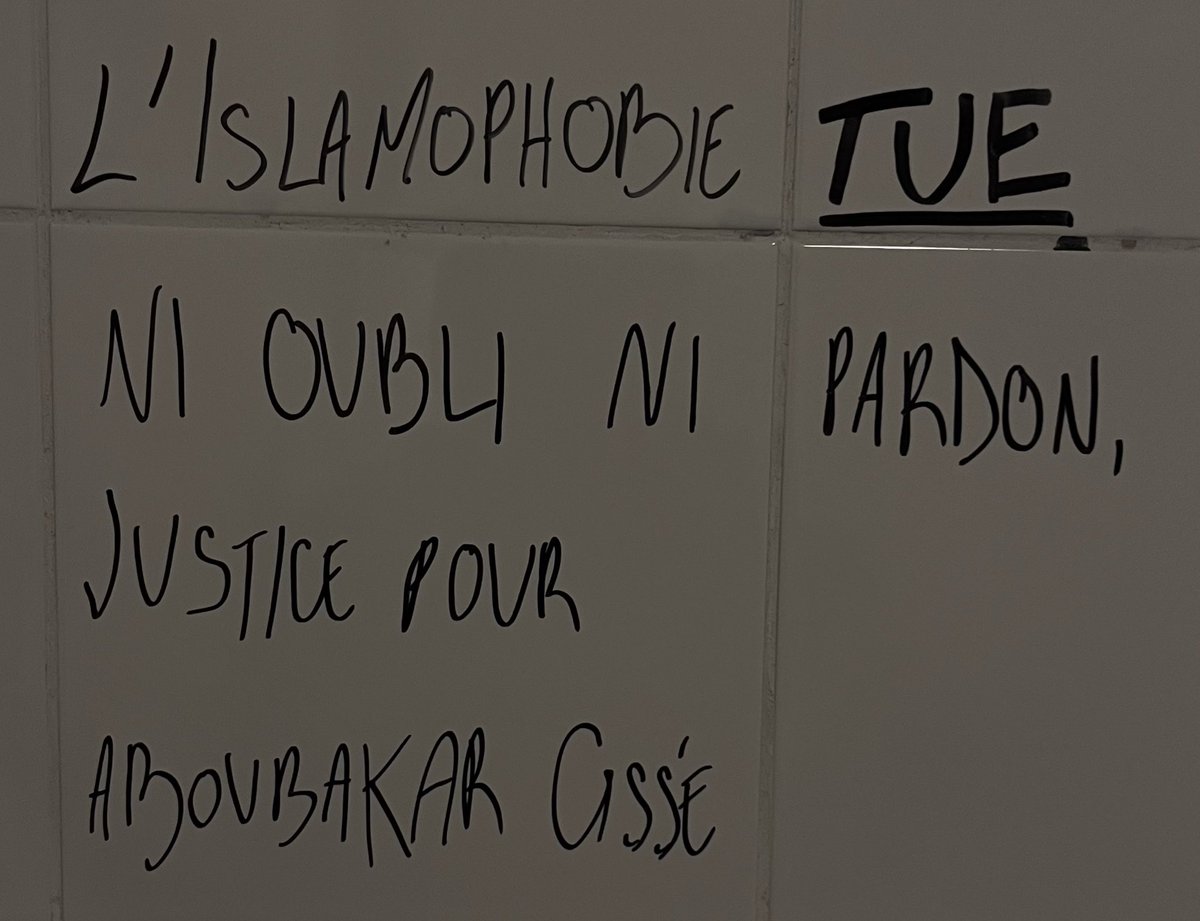 L'ISLAMOPHOBIE TUE
NI OUBLI NI PARDON,
JUSTICE POUR
ABOUBAKAR CISSÉ